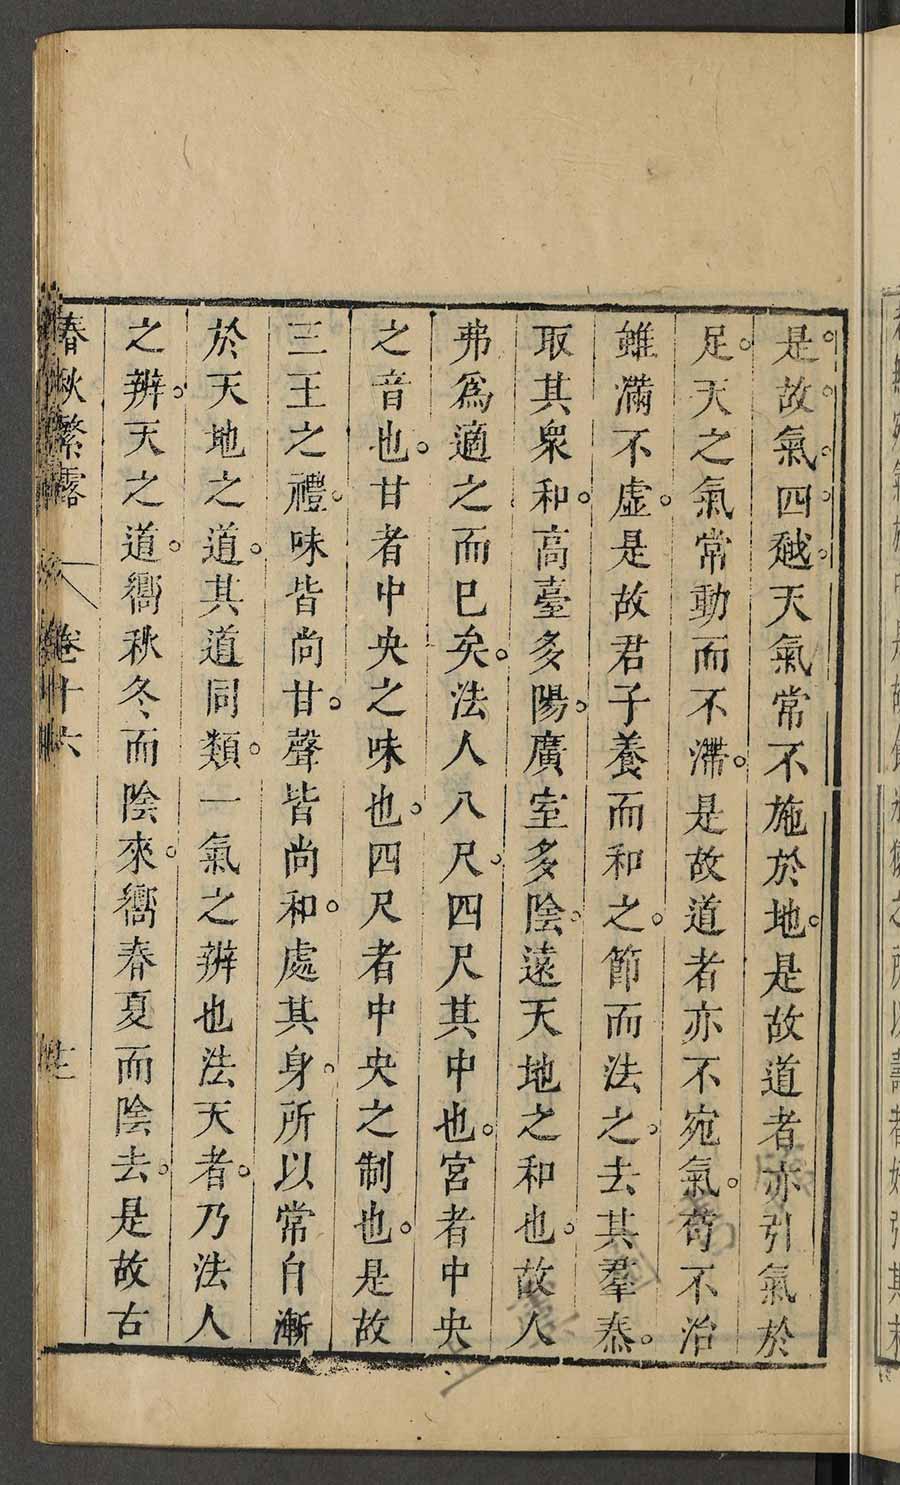 是故氣四越天氣常不施於地是故道者亦引氣於
足天之氣常動而不滯是故道者亦不宛氣苟不治
雖滿不虛是故君子養而和之節而法之去其羣泰
取其衆和高臺多陽廣室多陰遠天地之和也故人
弗爲適之而已矣法人八尺四尺其中也宮者中央
之音也甘者中央之味也四尺者中央之制也是故
三王之禮味皆尚甘聲皆尚和處其身所以常自漸
於天地之道其道同類一氣之辨也法天者乃法人
之辨天之道嚮秋冬而陰來嚮春夏而陰去是故古
春秋繁露 卷十六